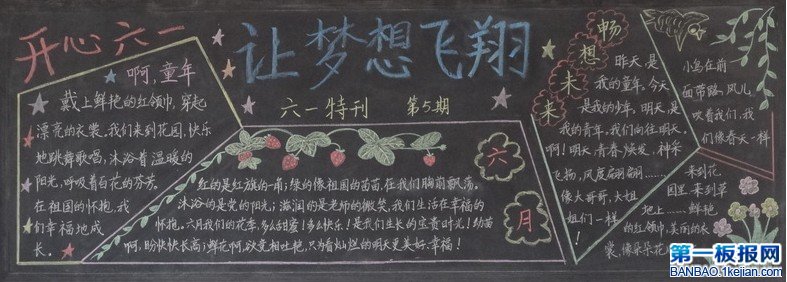 开心六一
让梦想飞翔
六一特刊 第5期
啊,童年
戴上鲜艳的红领巾,穿起
漂亮的衣裳。我们来到花园,快乐
地跳舞歌唱,沐浴着温暖的
阳光,呼吸着百花的芬芳。
在祖国的怀抱,我
们幸福地成
长。
六月
红的是红旗的一角;绿的像祖国的苗苗,在我们胸前飘荡。
沐浴的是党的阳光;滋润的是老师的微笑,我们生活在幸福的
怀抱。六月我们的花季,多么甜蜜!多么快乐!是我们生长的宝贵时光!幼苗
啊,盼快快长高;鲜花啊,欲竞相吐艳,只为着灿烂的明天更美好、幸福!
畅想未来
昨天是
我的童年,今天
是我的少年,明天是
我的青年,我们向往明天,
啊!明天,青春焕发,神采
飞扬,风度翩翩……
像大哥哥,大姐
姐们一样!
小鸟在前
面带路,风儿
吹着我们,我
们像春天一样
来到花
园里,来到草
地上……鲜艳
的红领巾,美丽的衣
裳,像朵朵花
第一板报网
BANBAO.1kejian.com